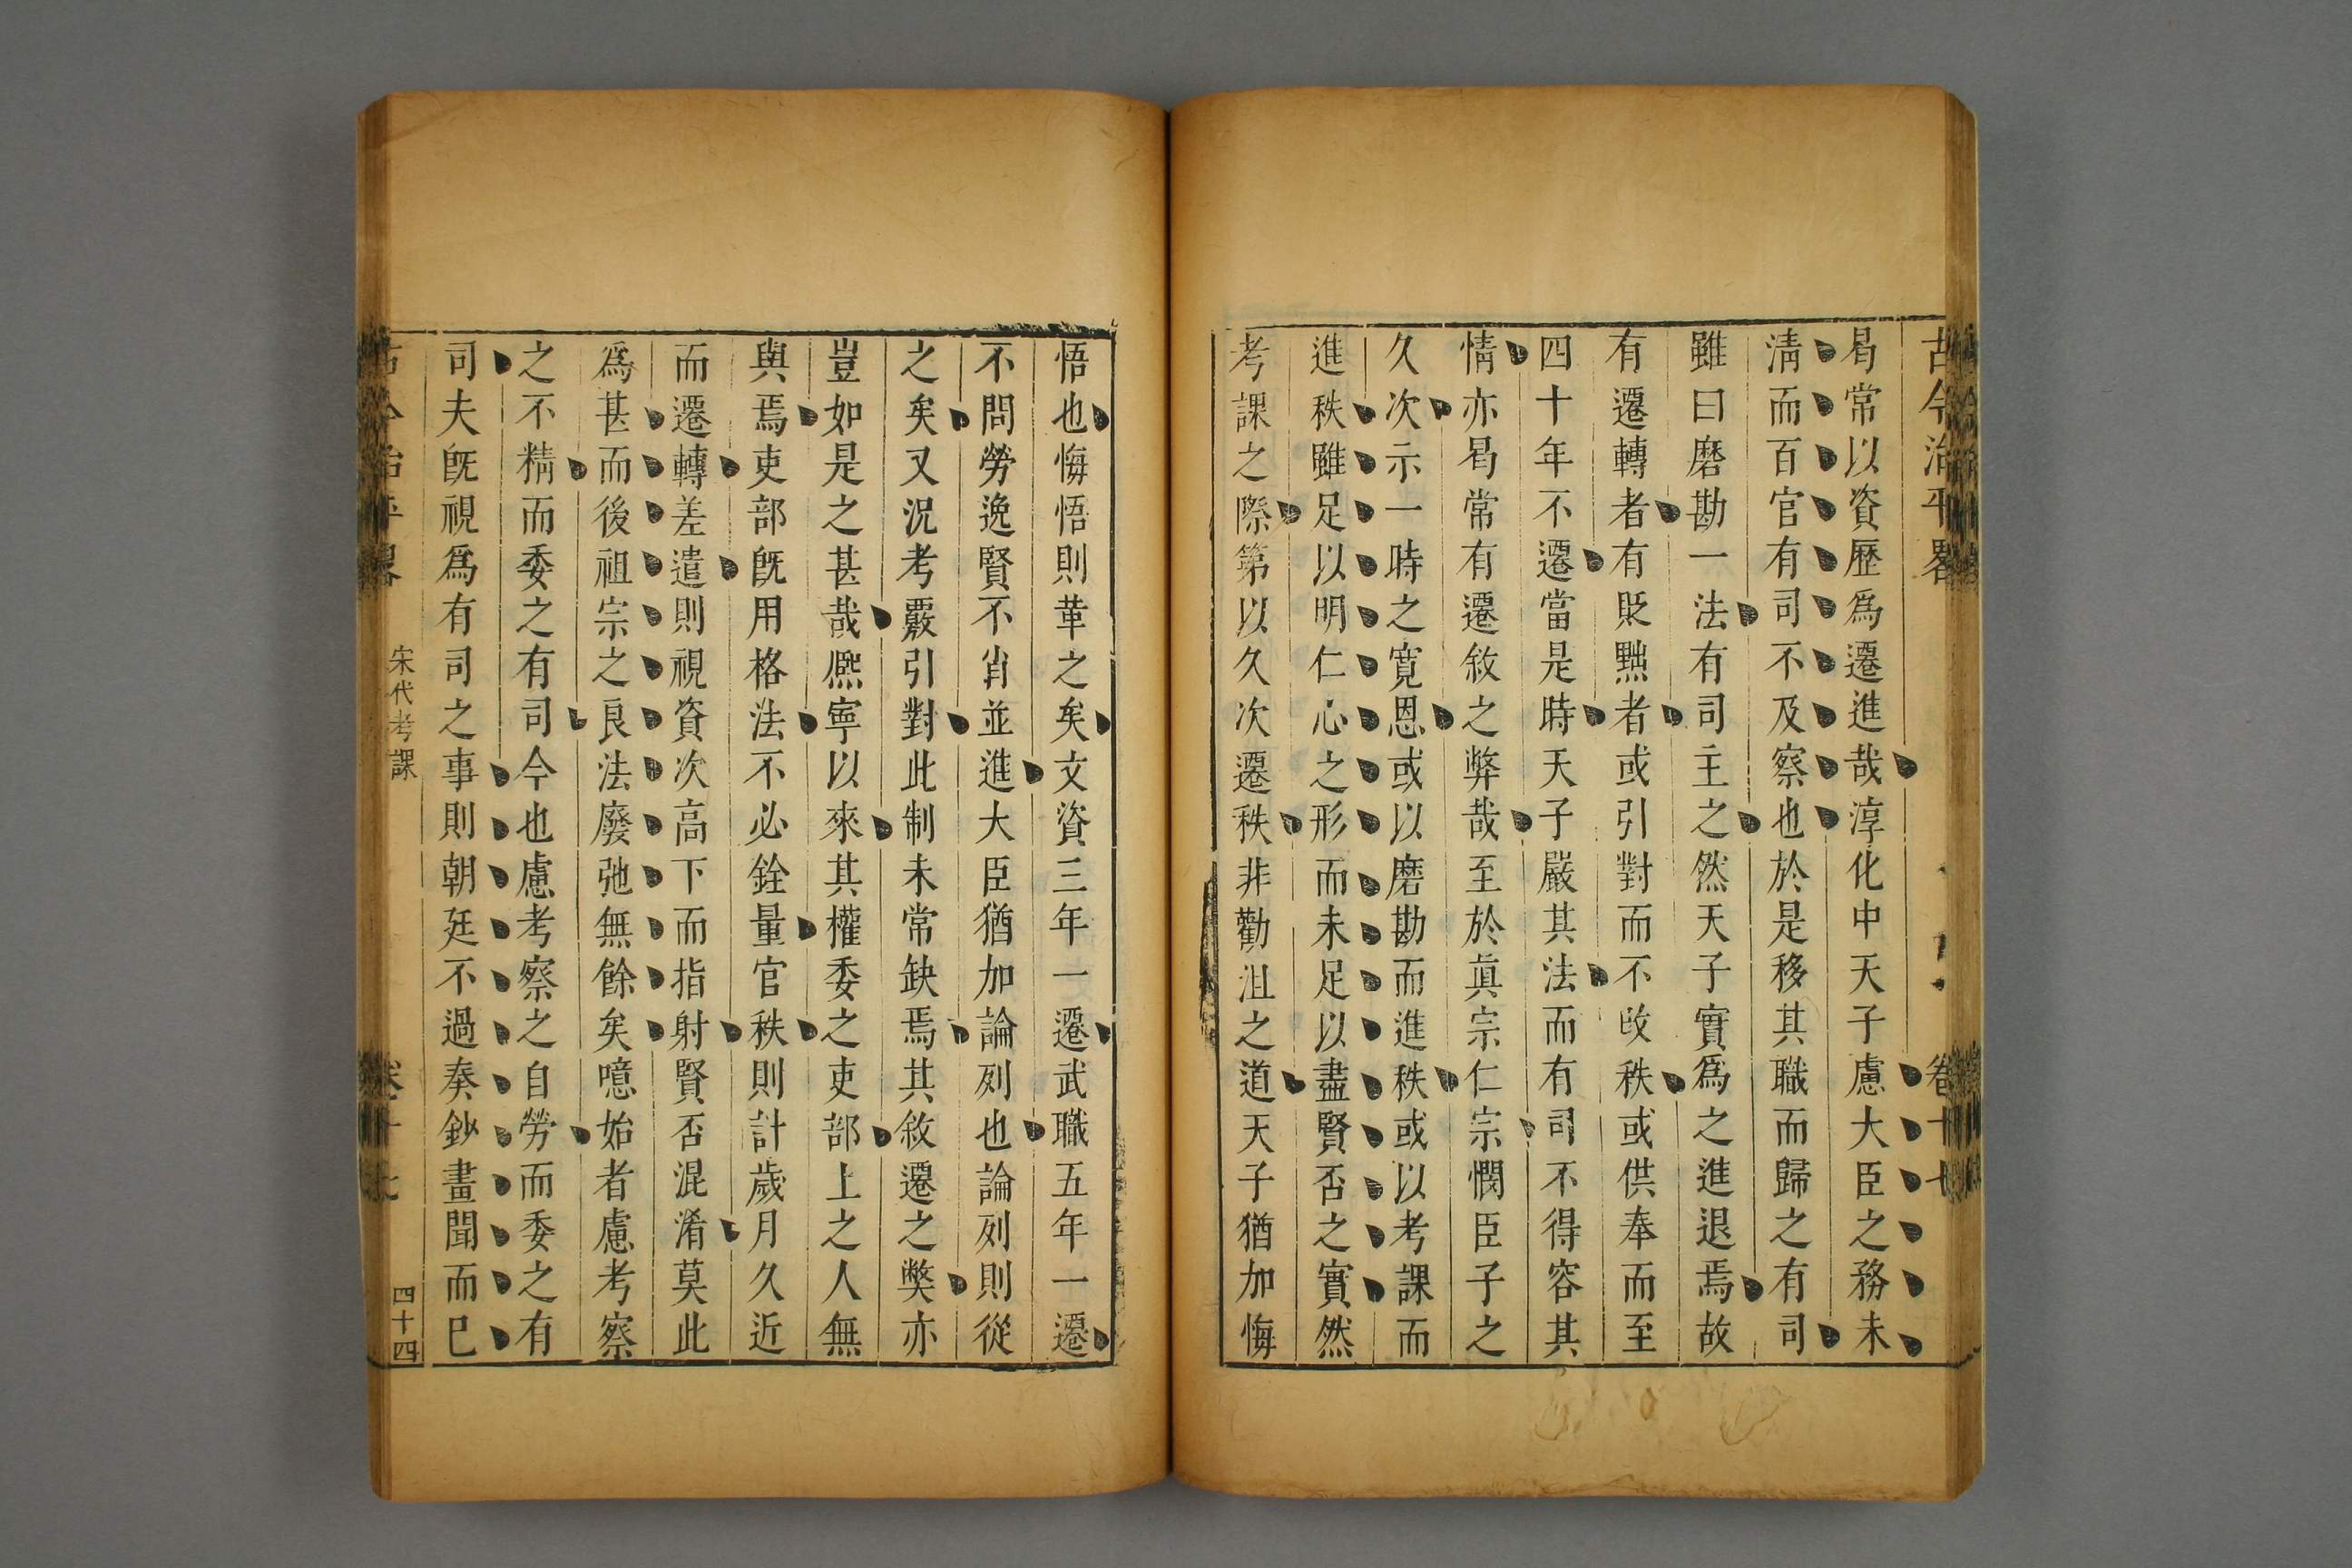 古今治平畧
卷十七
曷常以資歷爲遷進哉淳化中天子慮大臣之務未
淸而百官有司不及察也於是移其職而歸之有司
雖曰磨勘一法有司主之然天子實爲之進退焉故
有遷轉者有貶黜者或引對而不改秩或供奉而至
四十年不遷當是時天子嚴其法而有司不得容其
情亦曷常有遷敘之弊哉至於眞宗仁宗憫臣子之
久次示一時之寬恩或以磨勘而進秩或以考課而
進秩雖足以明仁心之形而未足以盡賢否之實然
考課之際第以久次遷秩非勸沮之道天子猶加悔
悟也悔悟則革之矣文資三年一遷武職五年一遷
不問勞逸賢不肖並進大臣猶加論列也論列則從
之矣又況考覈引對此制未常缺焉其敘遷之獘亦
豈如是之甚哉熈寧以來其權委之吏部上之人無
與焉吏部旣用格法不必銓量官秩則計歲月久近
而遷轉差遣則視資次高下而指射賢否混淆莫此
爲甚而後祖宗之良法廢弛無餘矣噫始者慮考察
之不精而委之有司今也慮考察之自勞而委之有
司夫旣視爲有司之事則朝廷不過奏鈔畫聞而已
古今治平畧
宋代考課
卷十七
四十四